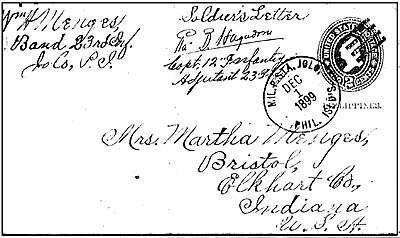 Wm H Menges
Band 23rd Inf.
Jolo, P.I.
Soldier's Letter
D. B.
Capt. 12 Infantry
Adjutant 23
MIL. STA. JOLO.
DEC
1
1899
PHIL.
PHILIPPINES.
Mrs. Martha Menges,
Bristol,
Elkhart Co,
Indiana
U. S. A.